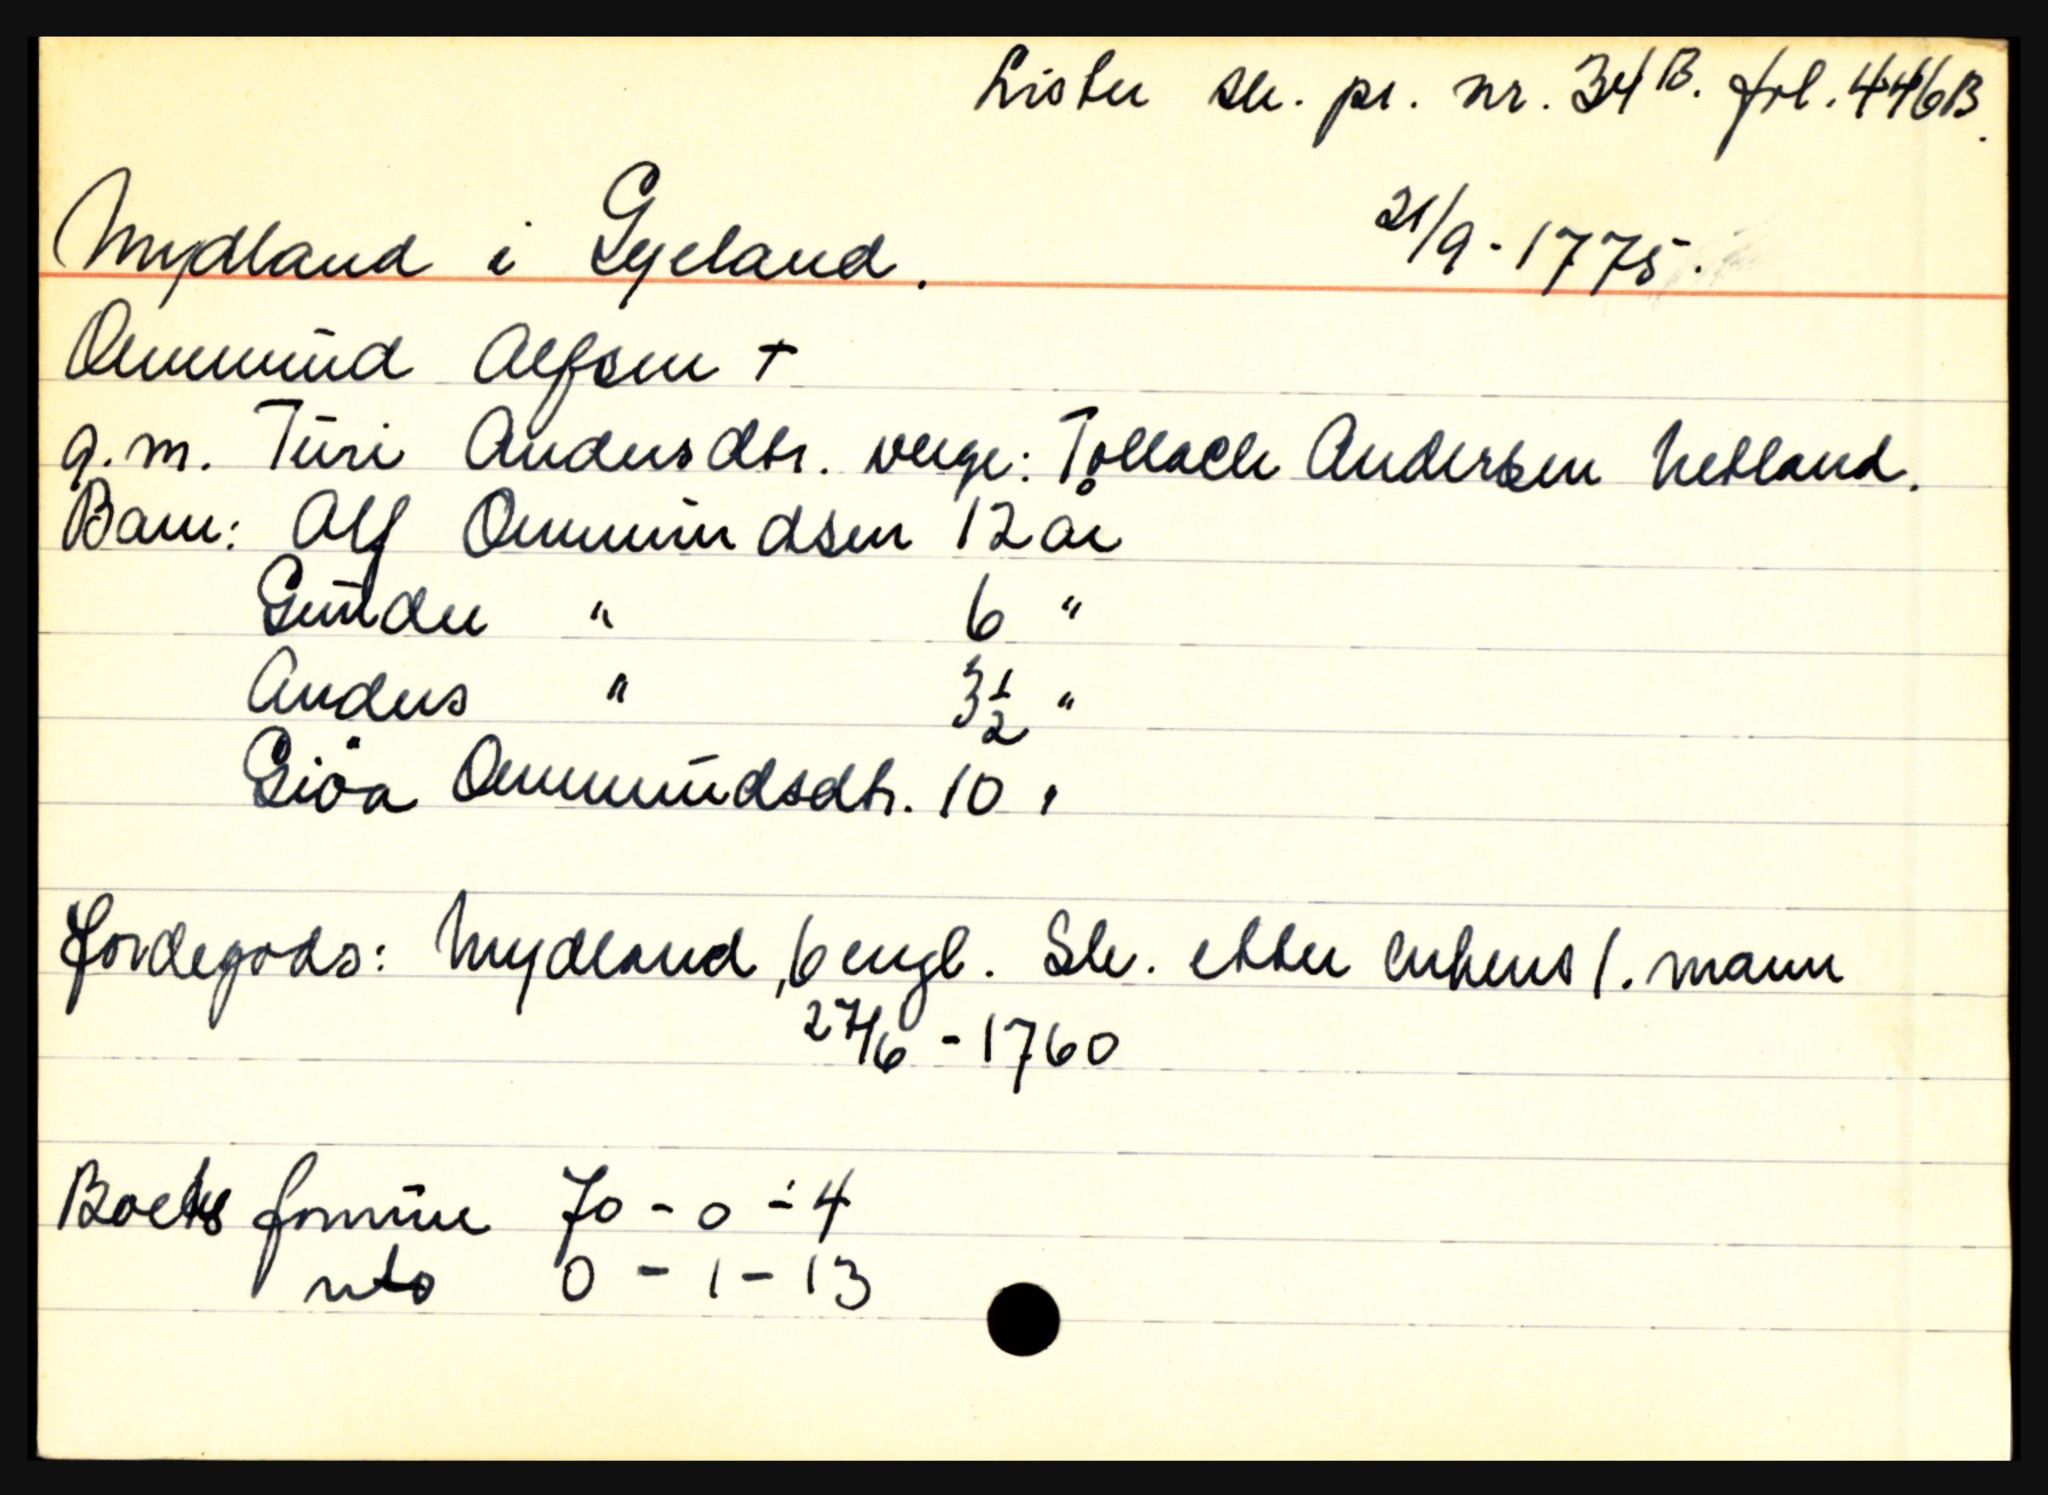 Lister sk. pr. nr. 34B. fol. 446B.
Mydland i Gyeland. 21/9-1775.
Ommund Alfsen +
g.m. Turi Andersdtr. verge: Tollach Andersen Netland.
Barn: Alf Ommundsen 12 år
Gunder " 6 "
Anders " 3 1/2 "
Giöa Ommundsdtr. 10 "
Jordegods: Mydland, 6 engl. Sk. etter enkens 1. mann
27/6 - 1760
Boets formue 70 - 0 - 4
nto 0 - 1 - 13